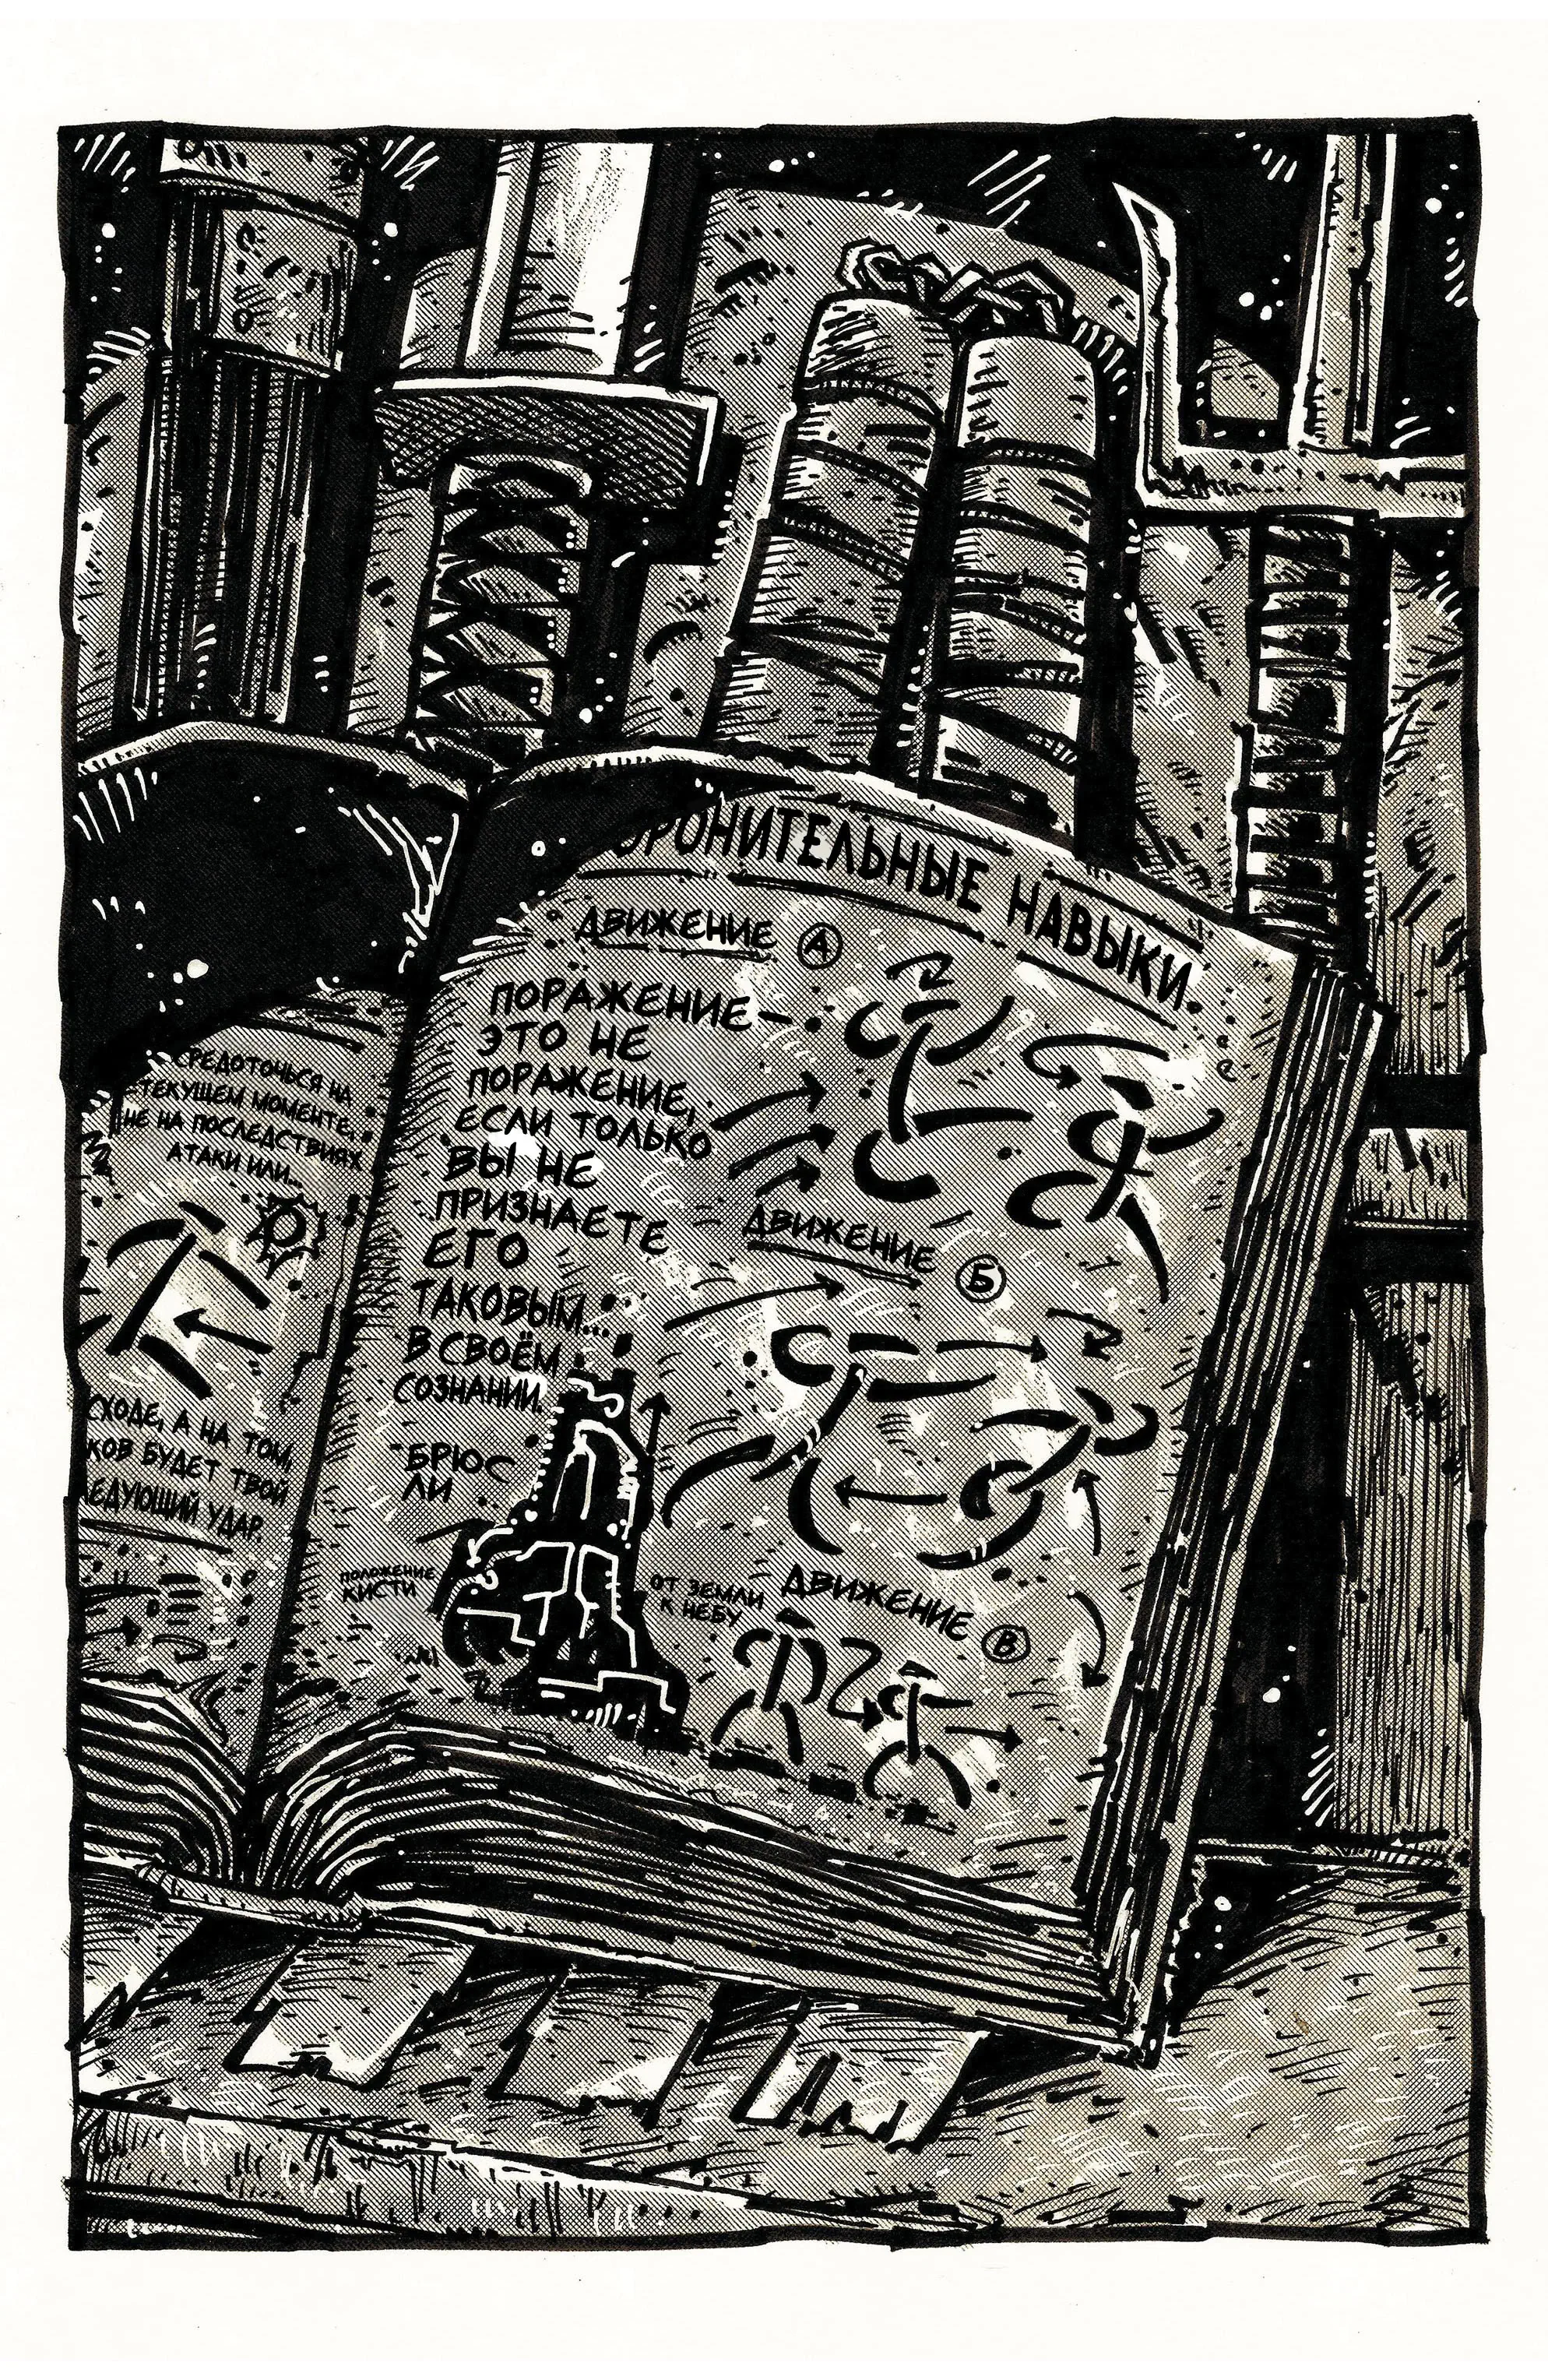 СРЕДОТОЧЬСЯ НА
ТЕКУЩЕМ МОМЕНТЕ,
НЕ НА ПОСЛЕДСТВИЯХ
АТАКИ ИЛИ...
СХОДЕ, А НА ТОМ,
КОВ БУДЕТ ТВОЙ
ЕДУЮЩИЙ УДАР.
ОРОНИТЕЛЬНЫЕ НАВЫКИ
ДВИЖЕНИЕ А
ПОРАЖЕНИЕ —
ЭТО НЕ
ПОРАЖЕНИЕ,
ЕСЛИ ТОЛЬКО
ВЫ НЕ
ПРИЗНАЕТЕ
ЕГО
ТАКОВЫМ...
В СВОЁМ
СОЗНАНИИ.
-БРЮС
ЛИ
ДВИЖЕНИЕ Б
ПОЛОЖЕНИЕ
КИСТИ
ОТ ЗЕМЛИ
К НЕБУ
ДВИЖЕНИЕ В